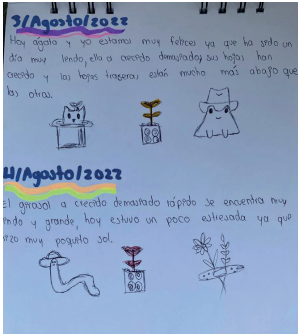 3/Agosto/2022
Hoy ágata y yo estamos muy felices ya que ha sido un
día muy lendo, ella a crecido demastado, sus hojas han
crecido y las hojas traseras están mucho más abajo que
las otras.
4/Agosto/2022
El girasol a crecido demastado rápido se encuentra muy
endo y grande, hoy estuvo un poco estresada ya que
izo muy poquito sol.